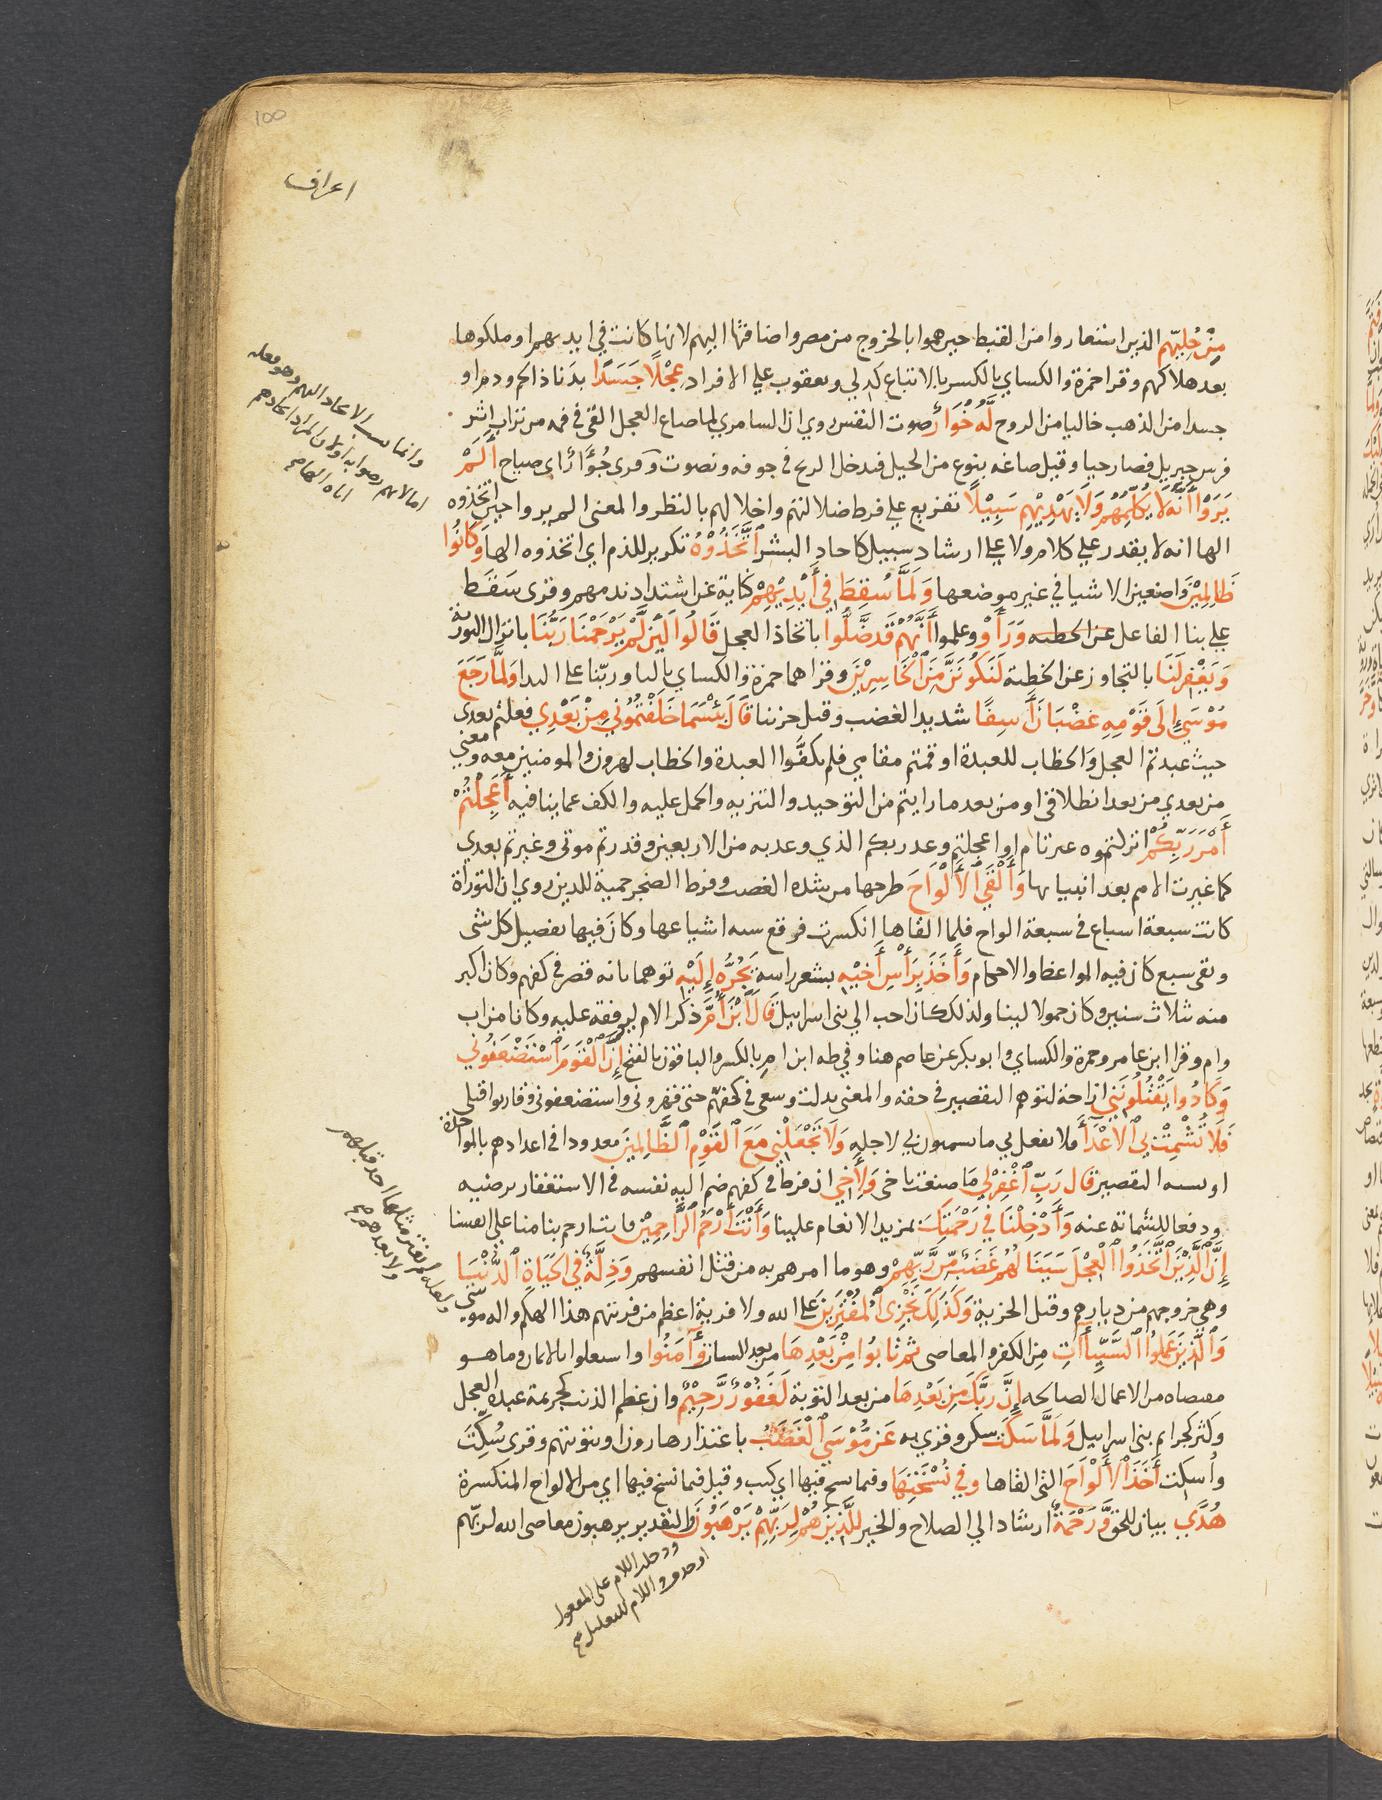 100
اعراف
مِنْ حُلِيِّهِم الذين استعاروا من القبط حين هموا بالخروج من مصر واضافتها اليهم لانها كانت في ايديهم او ملكوها
بعد هلاكهم وقرا حمزة والكساي بالكسر بالاتباع كدلي ويعقوب على الافراد عِجْلًا جَسَدًا بدنا ذا لحم ودم او
جسدا من الذهب خاليا من الروح لَهُ خُوَارٌ صوت البقر روي ان السامري لما صاغ العجل القى في فمه من تراب اثر
فرس جبريل فصار حيا وقيل صاغه بنوع من الحيل فيدخل الريح في جوفه وتصوت وقرى جُؤَارٌ اى صياح أَلَمْ
يَرَوْا أَنَّهُ لَا يُكَلِّمُهُمْ وَلَا يَهْدِيْهِم سَبِيْلًا تقريع على فرط ضلالتهم واخلالهم بالنظر والمعنى الم يروا حين اتخذوه
الها انه لا يقدر على كلام ولا على ارشاد سبيل كاحاد البشر ٱتَّخَذُوْهُ تكرير للذم اي اتخذوه الها وَكَانُوا
ظَالِمِيْنَ واضعين الاشيا في غير موضعها وَلَمَّا سُقِطَ فِي أَيْدِيْهِمْ كناية عن اشتداد ندمهم وقرى سَقَط
على بنا الفاعل عن الخطيه وَرَأَوْ وعلموا أَنَّهُمْ قَد ضَّلُّوا باتخاذ العجل قَالُوا لَئِن لَّمْ يَرْحَمْنَا رَبُّنَا بانزال التورية
وَيَغْفِر لَنَا بالتجاوز عن الخطية لَنَكُونَنَّ مِنَ ٱلْخَاسِرِيْنَ وقراهما حمزة والكساي بالتا وربّنا على الندا وَلَمَّا رَجَعَ
مُوْسَىٰ إِلَى قَوْمِهِ غَضْبَانَ أَسِفًا شديد الغضب وقيل حزينا قَالَ بِئْسَمَا خَلَفْتُمُوْنِي مِنْ بَعْدِي فعلتم بعدي
حيث عبدتم العجل والخطاب للعبدة او قمتم مقامي فلم تكفّوا العبدة والخطاب لهرون والمومنين معه ومعنى
من بعدي من بعد انطلاقي او من بعد ما رايتم من التوحيد والتنزيه والحمل عليه والكف عما ينافيه أَعَجِلْتُمْ
أَمْرَ رَبِّكُمْ اتركتموه غير تام او اعجلتم وعد ربكم الذي وعدنيه من الاربعين وقدرتم موتى وغيرتم بعدي
كما غيرت الامم بعد انبيايها وَأَلْقَى ٱلأَلْوَاحَ طرحها من شدة الغضب وفرط الضجر حمية للدين روي ان التوراة
كانت سبعة اسباع في سبعة الواح فلما القاها انكسرت فرفع ستة اسباعها وكان فيها تفصيل كل شى
وبقى سبع كان فيه المواعظ والاحكام وَأَخَذَ بِرَأْسِ أَخِيْهِ بشعر راسه يَجُرُّه إِلَيْهِ توهما بانه قصر في كفهم وكان اكبر
منه بثلاث سنين وكان حمولا لينا ولذلك كان احب الى بنى اسراييل قَالَ ٱبْنَ أُمَّ ذكر الام ليرفقه عليه وكانا من اب
وام وقرا ابن عامر وحمزة والكساي وابو بكر عن عاصم هنا وفي طه ابن امِ بالكسر والباقون بالفتح إِنَّ ٱلْقَوْمَ ٱسْتَضْعَفُوْنِي
وَكَادُوا يَقْتُلُوْنَنِي ازاحة لتوهم التقصير في حقه والمعنى بذلت وسعى في كفهم حتى قهرونى واستضعفوني وقاربوا قتلى
فَلَا تُشْمِتْ بِيَ ٱلأَعْدَآءَ فلا تفعل بي ما يشمتون بي لاجله وَلَا تَجْعَلْنِي مَعَ ٱلْقَوْمِ ٱلظَّالِمِيْنَ معدودا في اعدادهم بالمواخذة
او نسبه التقصير قَالَ رَبِّ ٱغْفِرْ لِي مَا صنعت باخى وَلِأَخِي ان فرط في كفهم ضم اليه نفسه في الاستغفار ترضيه
ودفعا للشماتة عنه وَأَدْخِلْنَا فِي رَحْمَتِكَ بمزيد الانعام علينا وَأَنْتَ أَرْحَمُ ٱلرَّاحِمِيْنَ فانت ارحم بنا منا على انفسنا
إِنَّ ٱلَّذِيْنَ ٱتَّخَذُوا ٱلْعِجْلَ سَيَنَالُهُمْ غَضَبٌ مِّن رَّبِّهِمْ وهو ما امرهم به من قتل انفسهم وَذِلَّةٌ فِي ٱلحَيَاةِ ٱلدُّنْيَا
وهي خروجهم من ديارهم وقيل الجزية وَكَذَلِكَ نَجْزِى ٱلمُفْتَرِيْنَ على الله ولا فرية اعظم من فريتهم هذا الهكم واله موسى
وَٱلَّذِيْنَ عَمِلُوا ٱلسَّيِّئَآتِ من الكفر والمعاصى ثُمَّ تَابُوا مِنْ بَعْدِهَا من بعد السيات وَآمَنُوا واشتغلوا بالايمان وما هو
مقتضاه من الاعمال الصالحه إِنَّ رَبَّكَ مِن بَعْدِهَا من بعد التوبة لَغَفُوْرٌ رَّحِيْمٌ وان عظم الذنب كجريمة عبده العجل
وكثر كجرايم بنى اسراييل وَلَمَّا سَكَتَ سكن وقرى به عَنْ مُّوْسَى ٱلْغَضَبُ باعتذار هارون او بتوبتهم وقرى سُكِّتَ
واسكت أَخَذَ ٱلأَلْوَاحَ التى القاها وَفِي نُسْخَتِهَا وفيما نسخ فيها اي كتب وقيل فيما نسخ فيها اي من الالواح المنكسرة
هُدًى بيان للحق وَّرَحْمَةٌ ارشاد الى الصلاح والخير لِلَّذِيْنَ هُمْ لِرَبِّهِمْ يَرْهَبُوْنَ والتقدير يرهبون معاصى الله لربّهم
ودخلت اللام على المفعول
او حذف واللام للتعليل
وانما نسب الاتحاد اليهم وهو فعله
اما لانهم رضوا به او لان المراد اتخاذهم
اياه الها
ولعله لم يفتر مثلها احد قبلهم
ولا بعدهم